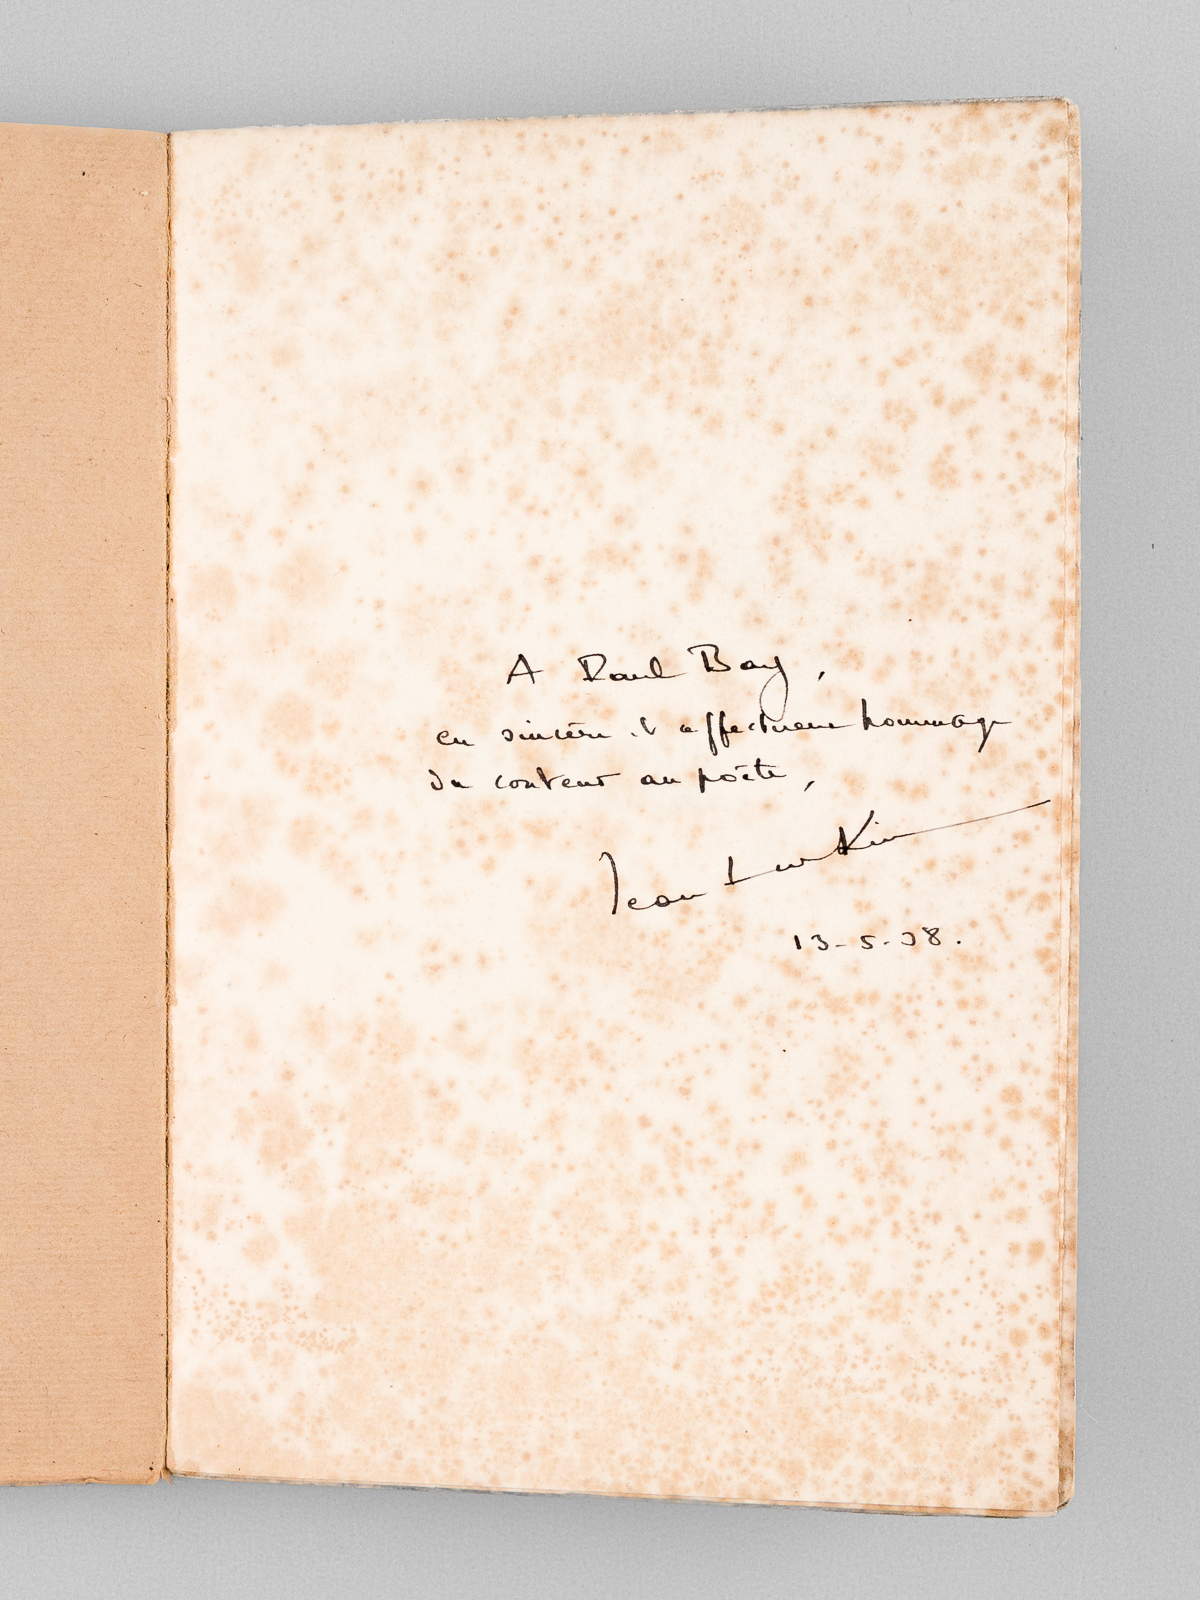 A Paul Bay,
en sincère et affectueux hommage
du conteur au poète,
Jean Lurkin
13-5-38.